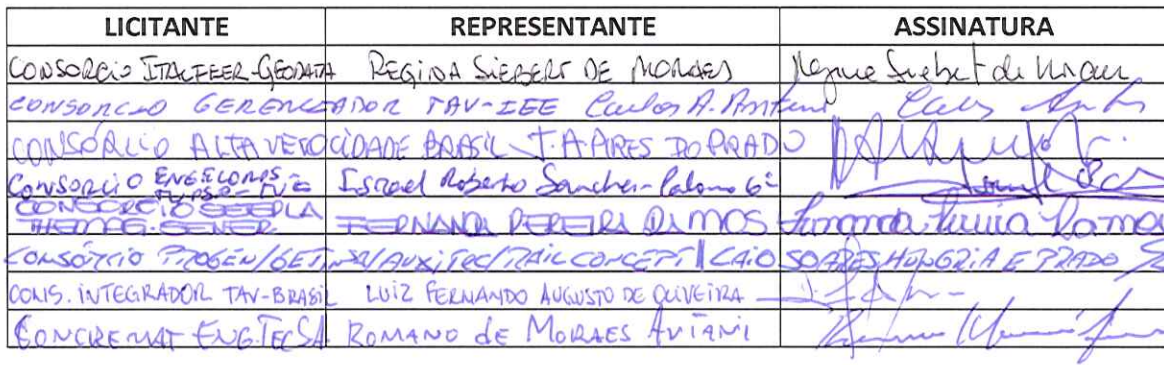 LICITANTE REPRESENTANTE ASSINATURA
CONSORCIO ITALFEER-GEODATA REGINA SIEBERT DE MORAES
CONSORCIO GERENCIADOR TAV-IEE Carlos A.
CONSÓRCIO ALTA VELOCIDADE BRASIL J.A. PIRES DO PRADO
CONSORCIO ENGECORPS Israel Roberto Sanchez-Palomo Gª
CONSORCIO FERNANDA PEREIRA RAMOS Fernanda Pereira Ramos
CONSÓRCIO PROGEN/GETINSA/AUXITEC/RAIL CONCEPT CAIO SOARES HUNGRIA E PRADO
CONS. INTEGRADOR TAV-BRASIL LUIZ FERNANDO AUGUSTO DE OLIVEIRA
CONCREMAT ENG. TEC SA ROMANO de MORAES AVIANI